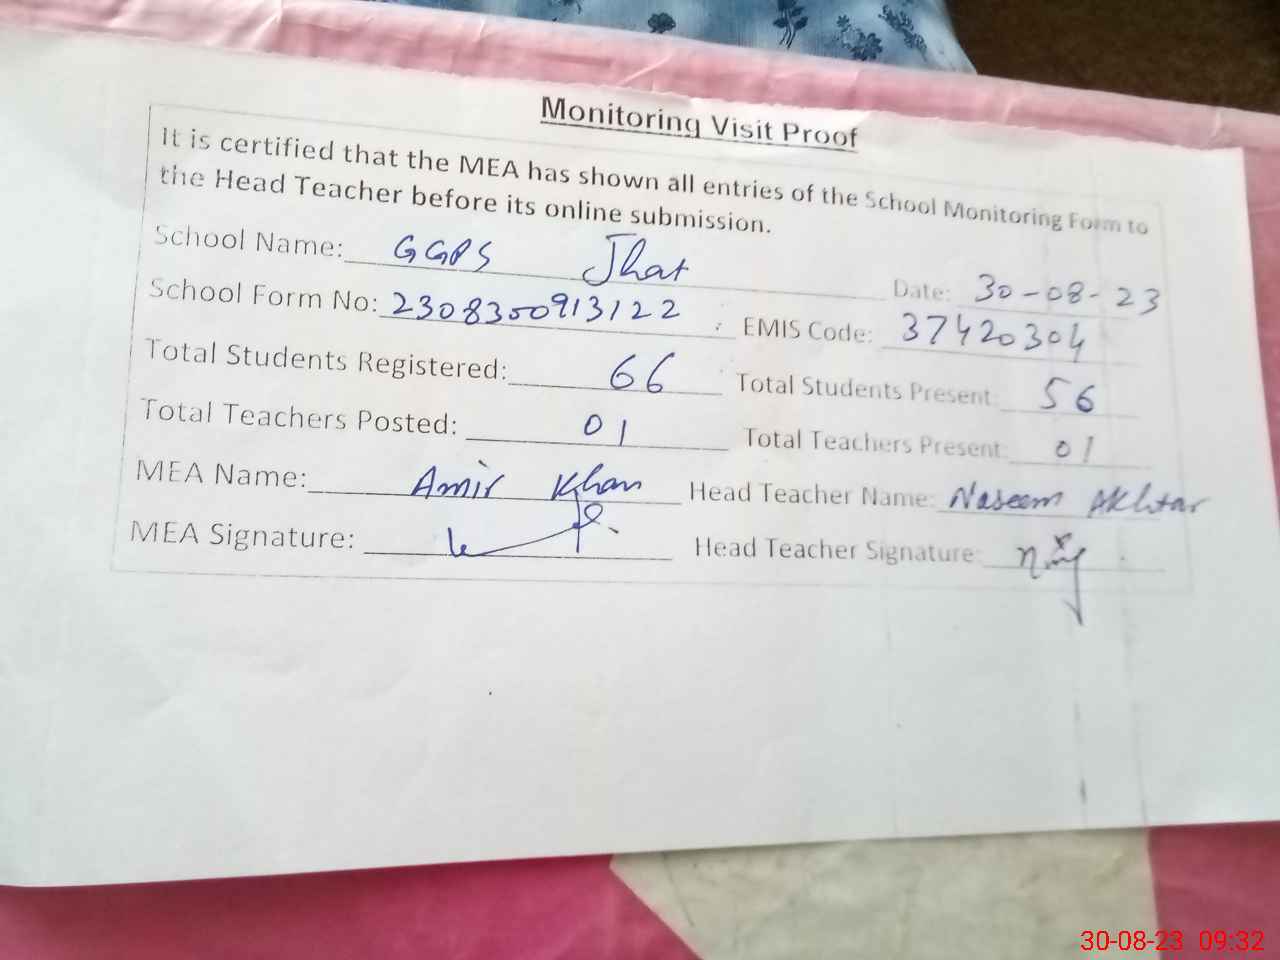 Monitoring Visit Proof
It is certified that the MEA has shown all entries of the School Monitoring Form to
the Head Teacher before its online submission.
School Name: GGPS Jhat Date: 30-08-23
School Form No: 2308300913122 EMIS Code: 37420304
Total Students Registered: 66 Total Students Present: 56
Total Teachers Posted: 01 Total Teachers Present: 01
MEA Name: Amir Khan Head Teacher Name: Naseem Akhtar
MEA Signature: Head Teacher Signature:
30-08-23 09:32